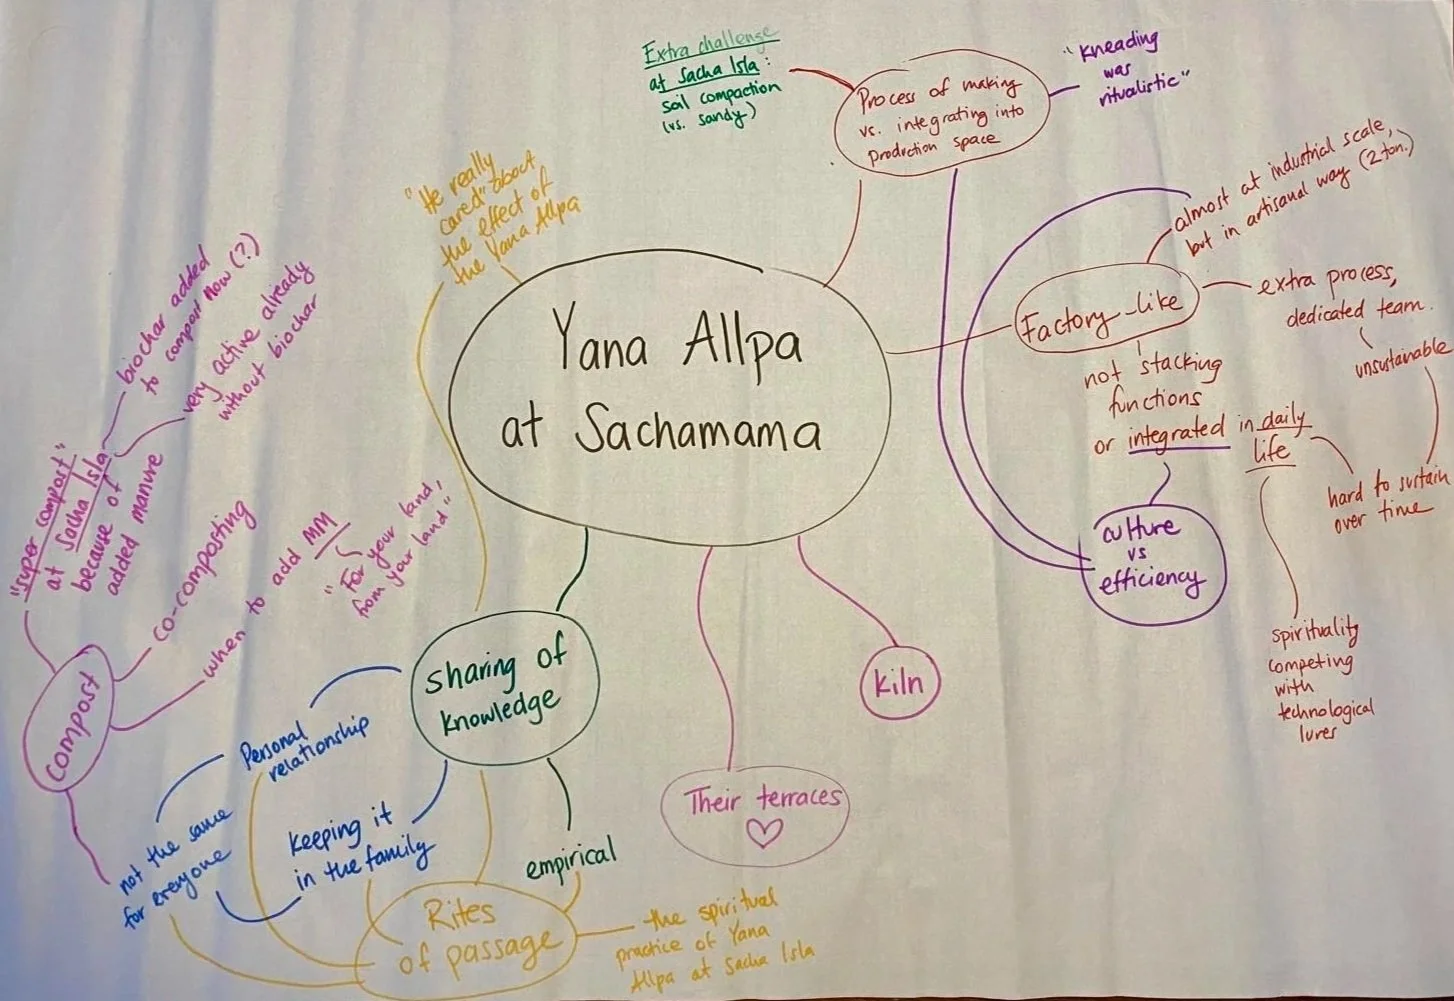 Extra challenge
at Sacha Isla:
soil compaction
(vs. sandy)
Process of making
vs. integrating into
production space
"kneading
was
ritualistic"
"He really
cared" about
the effect of
the Yana Allpa
almost at industrial scale,
but in artisanal way (2 ton.)
Factory-like
extra process,
dedicated team.
unsustainable
not stacking
functions
or integrated in daily
life
hard to sustain
over time
culture
vs
efficiency
spirituality
competing
with
technological
lures
Yana Allpa
at Sachamama
biochar added
to compost now (?)
very active already
without biochar
"super compost"
at Sacha Isla
because of
added manure
co-composting
when to add MM
"For your land,
from your land"
compost
sharing of
knowledge
Personal
relationship
not the same
for everyone
keeping it
in the family
empirical
Rites
of passage
the spiritual
practice of Yana
Allpa at Sacha Isla
Their terraces
kiln